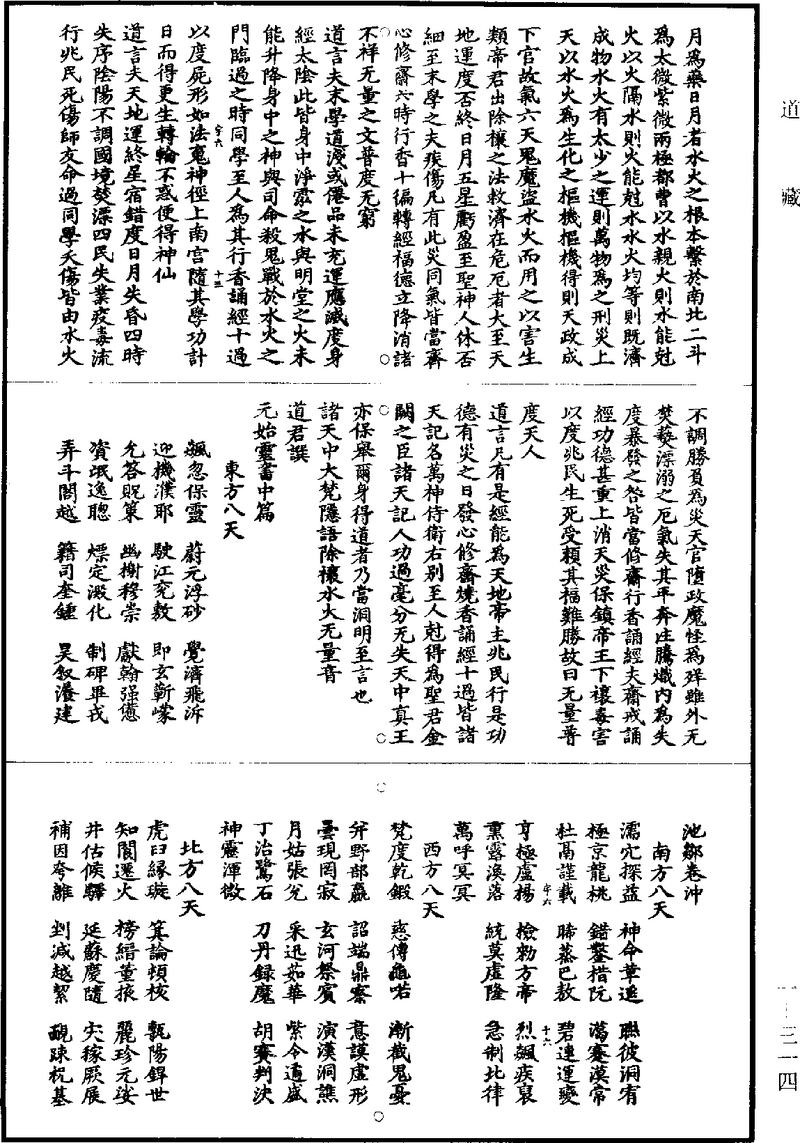 道藏
月爲藥日月若水火之根本繫於南北二斗
爲太微紫微兩極都曹以水親火則水能尅
火以火隔水則火能尅水水火均等則既濟
成物水火有太少之運則萬物爲之刑災上
天以水火爲生化之樞機樞機得則天政成
下官故氣六天鬼魔盜水火而用之以害生
類帝君出除禳之法救濟在危厄者大至天
地運度否終日月五星虧盈至聖神人休否
細至末學之夫疾傷凡有此災同氣皆當齋
心修齋六時行香十徧轉經福德立降消諸
不祥无量之文普度无窮
道言夫末學道淺或僊品未充運應滅度身
經太陰此皆身中淨靈之水與明堂之火未
能升降身中之神與司命殺鬼戰於水火之
門臨過之時同學至人爲其行香誦經十過
以度屍形如法䰟神徑上南宮隨其學功計
日而得更生轉輪不惑便得神仙
道言夫天地運終星宿錯度日月失昏四時
失序陰陽不調國境焚漂四民失業疫毒流
行兆民死傷師友命過同學夭傷皆由水火
字六
十三
不調勝負爲災天官隳政魔怪爲殃雖外无
焚爇漂溺之厄氣失其平奔注騰熾内爲失
度暴發之咎皆當修齋行香誦經夫齋戒誦
經功德甚重上消天災保鎮帝王下禳毒害
以度兆民生死受賴其福難勝故曰无量普
度天人
道言凡有是經能爲天地帝主兆民行是功
德有災之日發心修齋燒香誦經十過皆諸
天記名萬神侍衛右別至人尅得爲聖君金
闕之臣諸天記人功過毫分无失天中真王
亦保舉爾身得道者乃當洞明至言也
諸天中大梵隱語除禳水火无量音
道君譔
元始靈書中篇
東方八天
飆忽保靈 蔚元浮砂 覺濟飛泝
迎機濮耶 駛江兖敖 即玄蘄幪
允答貺策 幽榭穆崇 獻翰强
資珉逸聰 熛定澱化 制碑畢戎
弄斗閤越 籍司奎鍾 昊叙瀁建
池鄒卷沖
南方八天
濡宂探益 神命草遥 聯彼洞宥
極京龍桃 錯鑿措阮 蕩蹇漠常
杜鬲謹載 晞蒸巴敖 碧連運變
亨極虛揚 檢勑方帝 烈飆疾裒
熏露渙落 統莫虛隆 急制北律
萬呼冥冥
字六
十六
西方八天
梵度乾鍛 慈傳龜喏 漸截鬼憂
弇野部嬴 詔端鼎寮 意謨虛形
曇現罔寂 玄河祭賓 演漢洞譙
月姑張兊 采迅茹華 紫令遁盛
丁治鷺石 刀丹録魔 胡賽判決
神靈渾微
北方八天
虎臼緣璇 箕論頓核 甄陽鋅世
知閬暹火 榜縉董掖 麗珍元娑
井估候驛 延蘇慶隨 宍稼厥展
補因夸離 剉減越絜 覼疎柷基
一—三一四